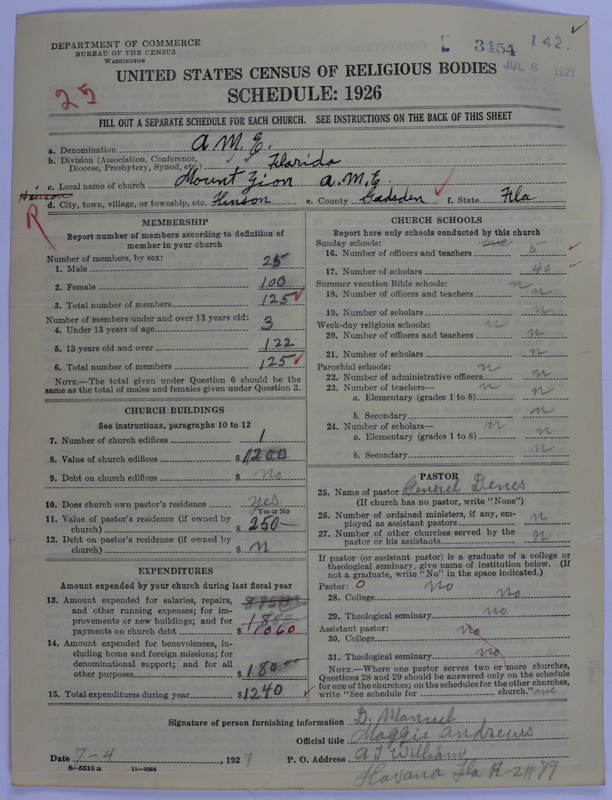 DEPARTMENT OF COMMERCE
BUREAU OF THE CENSUS
WASHINGTON
3454 142.
JUL 8 1927
UNITED STATES CENSUS OF RELIGIOUS BODIES
SCHEDULE: 1926
25
FILL OUT A SEPARATE SCHEDULE FOR EACH CHURCH. SEE INSTRUCTIONS ON THE BACK OF THIS SHEET
a. Denomination A. M. E.
b. Division (Association, Conference, Diocese, Presbytery, Synod, etc.) Florida
c. Local name of church Mount Zion A.M.E.
Hinson
d. City, town, village, or township, etc. Hinson e. County Gadsden f. State Fla
R
MEMBERSHIP
Report number of members according to definition of member in your church
Number of members, by sex:
1. Male 25
2. Female 100
3. Total number of members 125
Number of members under and over 13 years old:
4. Under 13 years of age 3
5. 13 years old and over 122
6. Total number of members 125
NOTE.—The total given under Question 6 should be the same as the total of males and females given under Question 3.
CHURCH BUILDINGS
See instructions, paragraphs 10 to 12
7. Number of church edifices 1
8. Value of church edifices $1200
9. Debt on church edifices $ No
10. Does church own pastor's residence yes
Yes or No
11. Value of pastor's residence (if owned by church) $ 250—
12. Debt on pastor's residence (if owned by church) $ n
EXPENDITURES
Amount expended by your church during last fiscal year
13. Amount expended for salaries, repairs, and other running expenses; for improvements or new buildings; and for payments on church debt $ 1060
14. Amount expended for benevolences, including home and foreign missions; for denominational support; and for all other purposes $ 180.00
15. Total expenditures during year $1240
CHURCH SCHOOLS
Report here only schools conducted by this church
Sunday schools:
16. Number of officers and teachers 5
17. Number of scholars 40
Summer vacation Bible schools: n
18. Number of officers and teachers n
19. Number of scholars n
Week-day religious schools: n
20. Number of officers and teachers n
21. Number of scholars n
Parochial schools: n
22. Number of administrative officers n
23. Number of teachers— n
a. Elementary (grades 1 to 8) n
b. Secondary n
24. Number of scholars— n
a. Elementary (grades 1 to 8) n
b. Secondary n
PASTOR
25. Name of pastor
(If church has no pastor, write "None")
26. Number of ordained ministers, if any, employed as assistant pastors n
27. Number of other churches served by the pastor or his assistants n
If pastor (or assistant pastor) is a graduate of a college or theological seminary, give name of institution below. (If not a graduate, write "No" in the space indicated.)
Pastor: O No
28. College No
29. Theological seminary no
Assistant pastor: no
30. College
31. Theological seminary no
NOTE.—Where one pastor serves two or more churches, Questions 28 and 29 should be answered only on the schedule for one of the churches; on the schedules for the other churches, write "See schedule for church." one
Signature of person furnishing information D. Manuel
Official title Maggie Andrews
Date 7-4, 1927 P. O. Address A J William
8-5518a 11-9054 Havana Fla R-2# 79